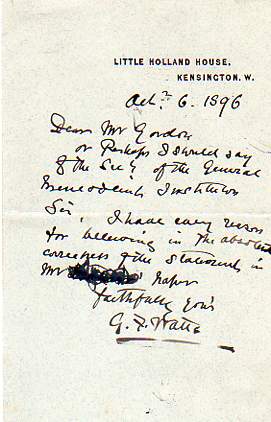 LITTLE HOLLAND HOUSE,
KENSINGTON, W.
Oct. 6. 1896
Dear Mr Gordon
or Perhaps I should say
of the General
Benevolent Institution
Sir, I have every reason
for believing in the absolute
correctness of the statements in
Mr paper
faithfully yours
G. F. Watts